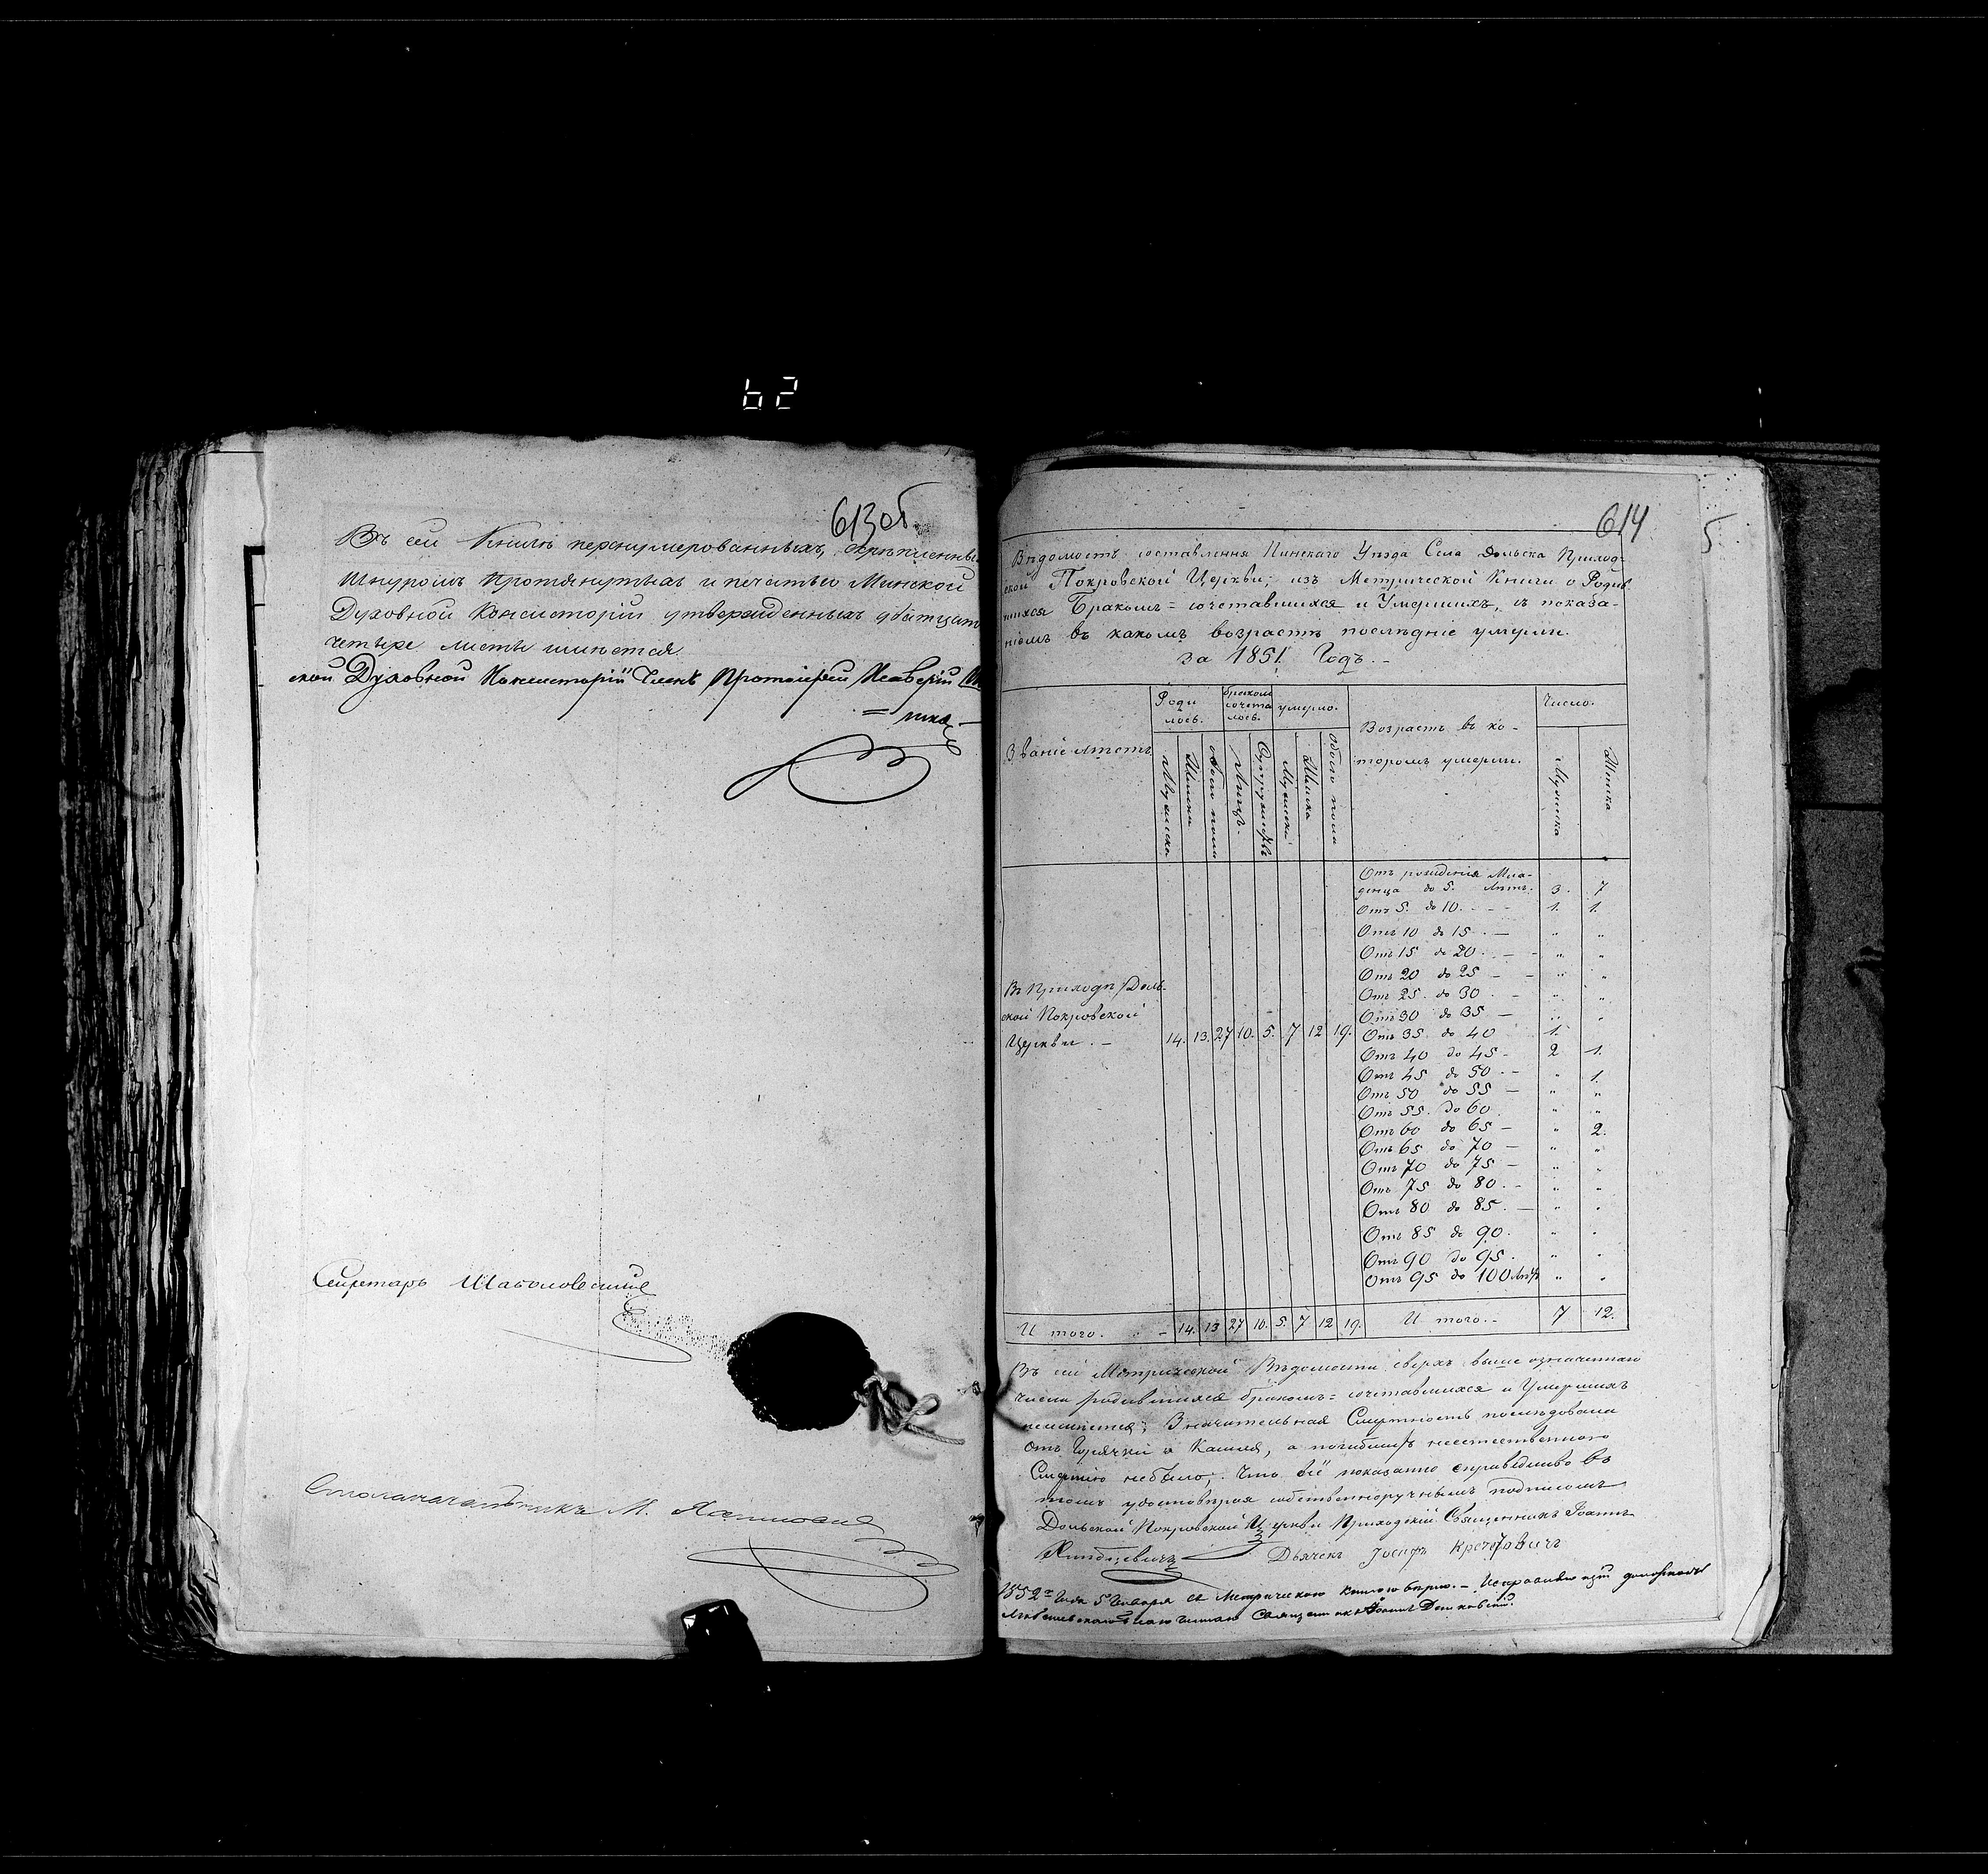 62
613об
Въ сей Книгѣ перенумерованныхъ, скрѣпленны
Шнуромъ протянутыхъ и печатью Минской
Духовной Консисторіи утвержденныхъ двадцат
четыре листы имѣется
ской Духовной Консисторіи Членъ Протоіерей
Секретарь
Столоначальникъ М.
614
5
Вѣдомость составленна Пинскаго Уѣзда Села Дольска Приход-
ской Покровской Церкви; изъ Метрической Книги о Родив
шихся Бракомъ = сочетавшихся и Умершихъ, съ показа-
ніемъ въ какомъ возрастѣ послѣдніе умерли.
за 1851 Годъ. -
Званіе мѣстъ
Роди
лось.
бракомъ
сочета
лось.
умерло.
Возрастъ въ ко-
торомъ умерли.
Число.
Мужеска
Женска
обоего пола
Лицъ.
Супружествъ
Мужеска
Женска
Обоего пола
Мужеска
Женска
Отъ рожденія Мла-
денца до 5. Лѣтъ. 3. 7
Отъ 5. до 10. - - 1. 1.
Отъ 10 до 15. — " "
Отъ 15 до 20. — - " "
Отъ 20 до 25 - - " "
Отъ 25. до 30. - " "
Отъ 30 до 35 — " "
Въ Приходѣ Доль-
ской Покровской
Церкви. — 14. 13. 27 10. 5. 7 12 19.
Отъ 35. до 40 1. "
Отъ 40 до 45 - 2 1.
Отъ 45 до 50. - " 1.
Отъ 50 до 55 — " "
Отъ 55. до 60. " "
Отъ 60 до 65 — " 2.
Отъ 65 до 70 — " "
Отъ 70 до 75 — " "
Отъ 75 до 80. - " "
Отъ 80 до 85. — " "
Отъ 85 до 90. " "
Отъ 90 до 95. " "
Отъ 95 до 100 Лѣтъ " "
И того. - 14. 13 27 10. 5. 7 12 19. И того. - 7 12.
Въ сей Метрической Вѣдомости сверхъ выше означеннаго
числа родившихся бракомъ = сочетавшихся и Умершихъ
неимѣется; Значительная Смертность послѣдовала
отъ Горячки и Кашля, а погибшихъ неестественною
Смертію небыло; Что всё показанно справедливо въ
томъ удостовѣряя собственноручнымъ подписомъ
Дольской Покровской Церкви Приходскій Священникъ Іоаннъ
Дьячекъ Іосифъ Кречетовичъ
1852го Года 5 Января съ Метрическою Книгою вѣрно. —
Священникъ Іоаннъ